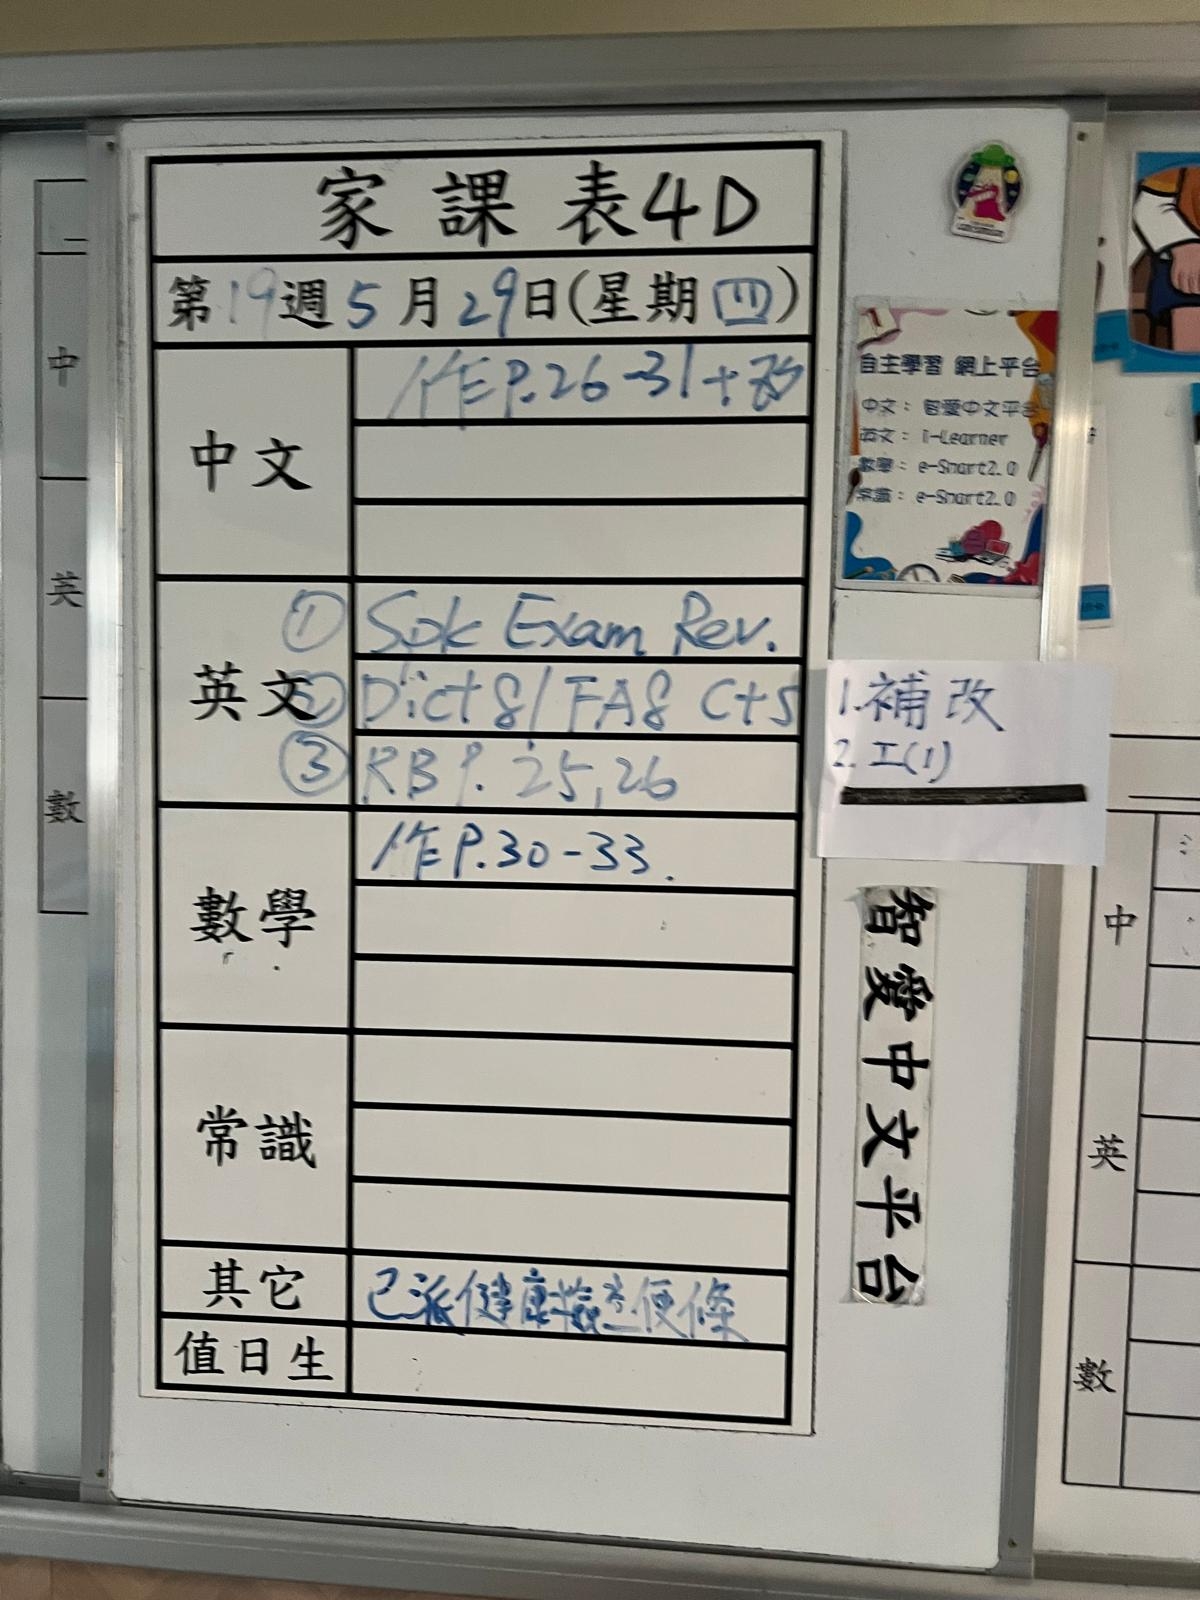 家課表4D
第19週5月29日(星期四)
中文
作P.26-31+改
英文
① Spk Exam Rev.
② Dict 8/FA8 C+S
③ RB P. 25,26
數學
作P.30-33.
常識
其它
已派健康檢查便條
值日生
自主學習 網上平台
中文：智愛中文平台
英文：i-Learner
數學：e-Smart2.0
常識：e-Smart2.0
1.補改
2.工(1)
智愛中文平台
中
英
數
中
英
數